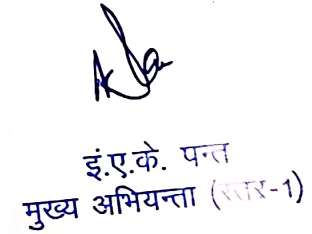 इं.ए.के. पन्त
मुख्य अभियन्ता (स्तर-1)